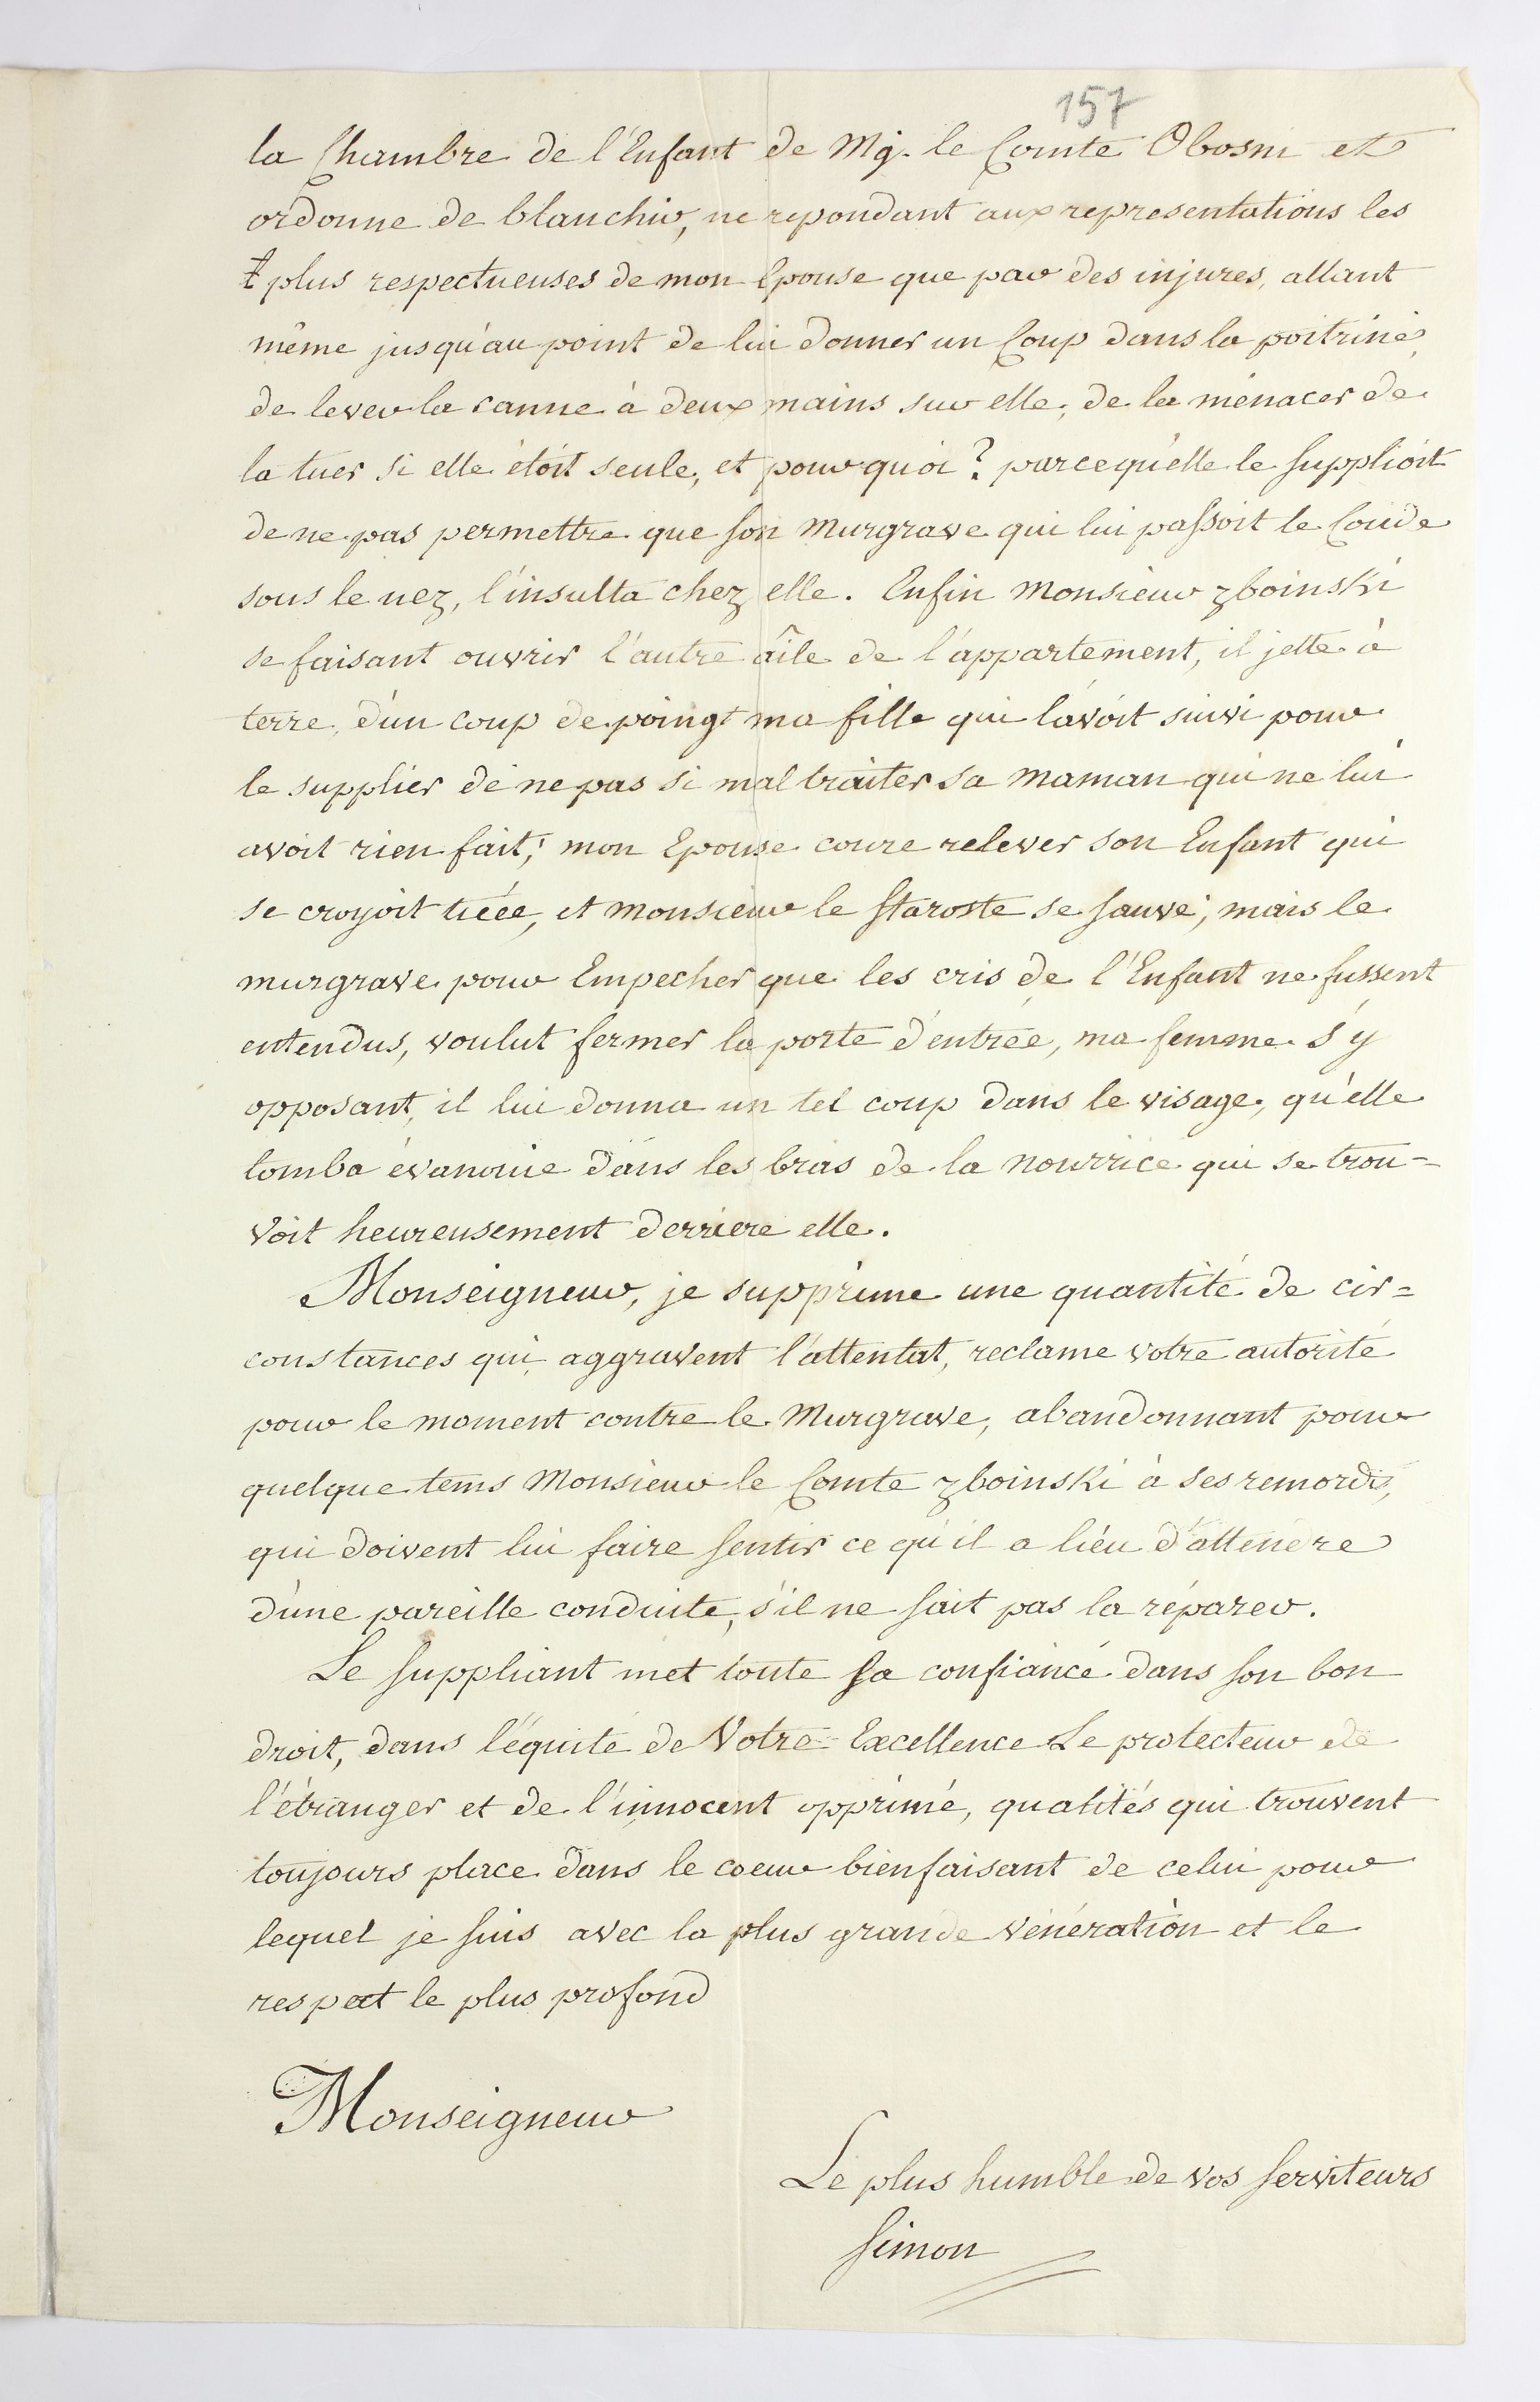 157
la Chambre de l'Enfant de Mg. le Comte Obosni et
ordonne de blanchir, ne repondant aux representations les
plus respectueuses de mon Epouse que par des injures, allant
même jusqu'au point de lui donner un Coup dans la poitrine,
de lever la canne à deux mains sur elle, de la menacer de
la tuer si elle étoit seule, et pourquoi? parcequ'elle le supplioit
de ne pas permettre que son Murgrave qui lui passoit le Coude
sous le nez, l'insulta chez elle. Enfin Monsieur zboinski
se faisant ouvrir l'autre aîle de l'appartement, il jette à
terre, d'un coup de poingt ma fille qui l'avoit suivi pour
le supplier de ne pas si mal traiter sa Maman qui ne lui
avoit rien fait; mon Epouse coure relever son Enfant qui
se croyoit tuée, et Monsieur le Staroste se sauve; mais le
murgrave pour Empecher que les cris de l'Enfant ne fussent
entendus, voulut fermer la porte d'entrée, ma femme s'y
opposant, il lui donna un tel coup dans le visage, qu'elle
tomba évanouie dans les bras de la nourrice qui se trou=
voit heureusement derriere elle.
Monseigneur, je supprime une quantité de cir=
constances qui aggravent l'attentat, reclame votre autorité
pour le moment contre le Murgrave, abandonnant pour
quelque tems Monsieur le Comte zboinski à ses remords,
qui doivent lui faire sentir ce qu'il a lieu d'attendre
d'une pareille conduite, s'il ne sait pas la réparer.
Le suppliant met toute sa confiance dans son bon
droit, dans l'équité de Votre Excellence Le protecteur de
l'étranger et de l'innocent opprimé, qualités qui trouvent
toujours place dans le coeur bienfaisant de celui pour
lequel je suis avec la plus grande vénération et le
respect le plus profond
Monseigneur
Le plus humble de vos serviteurs
Simon